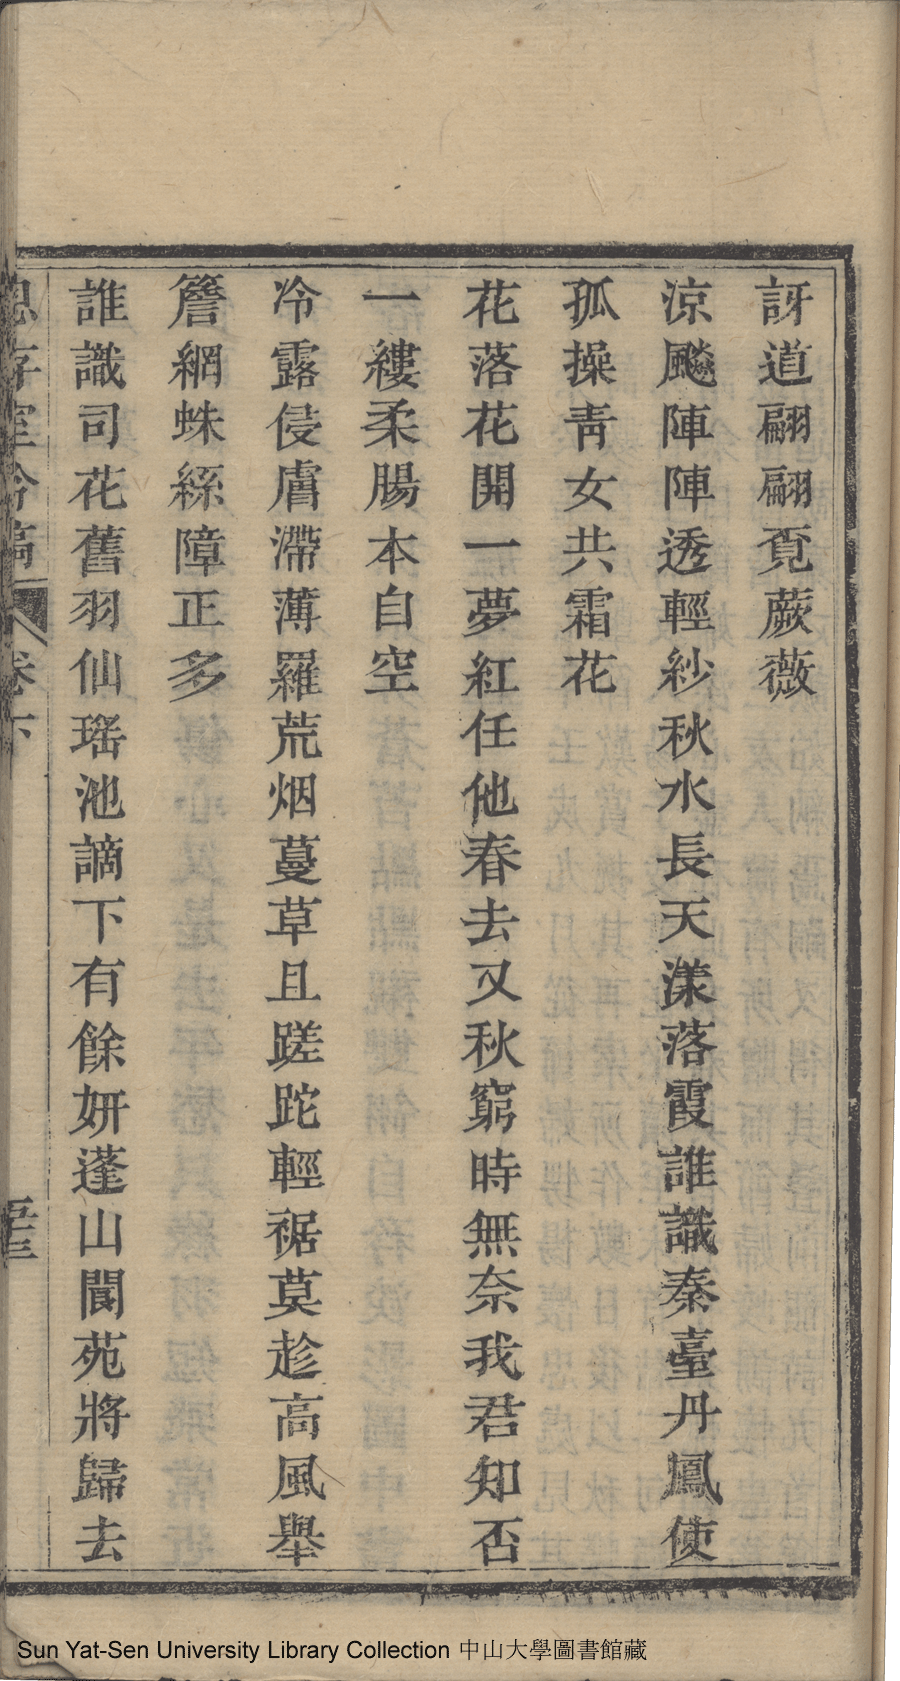 訝道翩翩覔蕨薇
涼飈陣陣透輕紗秋水長天漾落霞誰識秦臺丹鳳使
孤操靑女共霜花
花落花開一夢紅任他春去又秋窮時無奈我君知否
一縷柔腸本自空
冷露侵膚滯薄羅荒烟蔓草且蹉跎輕裾莫趁高風舉
簷網蛛絲障正多
誰識司花舊羽仙瑤池謫下有餘妍蓬山閬苑將歸去
室吟稿 卷下
Sun Yat-Sen University Library Collection 中山大學圖書館藏